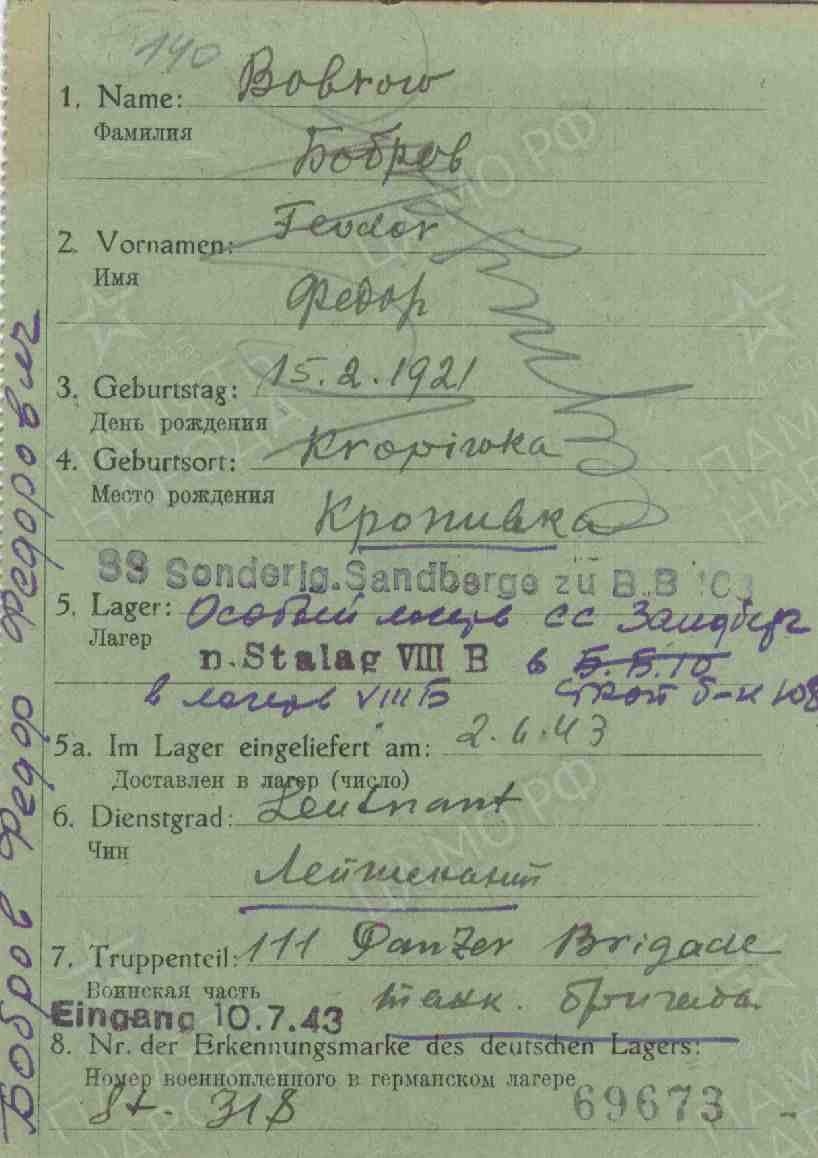 140
1. Name: Bobrow
Фамилия
Бобров
2. Vornamen: Feodor
Имя
Федор
3. Geburtstag: 15.2.1921
День рождения
4. Geburtsort: Kropiwka
Место рождения
Кропивка
SS Sonderlg. Sandberge zu B.B
5. Lager: Особый лагерь СС Зандберг
Лагер
n. Stalag VIII B в Б.Б.10
в лагерь VIII Б строй б-н 108
5a. Im Lager eingeliefert am: 2.6.43
Доставлен в лагер (число)
6. Dienstgrad: Leutnant
Чин
Лейтенант
7. Truppenteil: 111 Panzer Brigade
Воинская часть танк. бригада
Eingang 10.7.43
8. Nr. der Erkennungsmarke des deutschen Lagers:
Номер военнопленного в германском лагере
318 69673
Бобров Федор Федорович
ЦАМО РФ
ЦАМО РФ